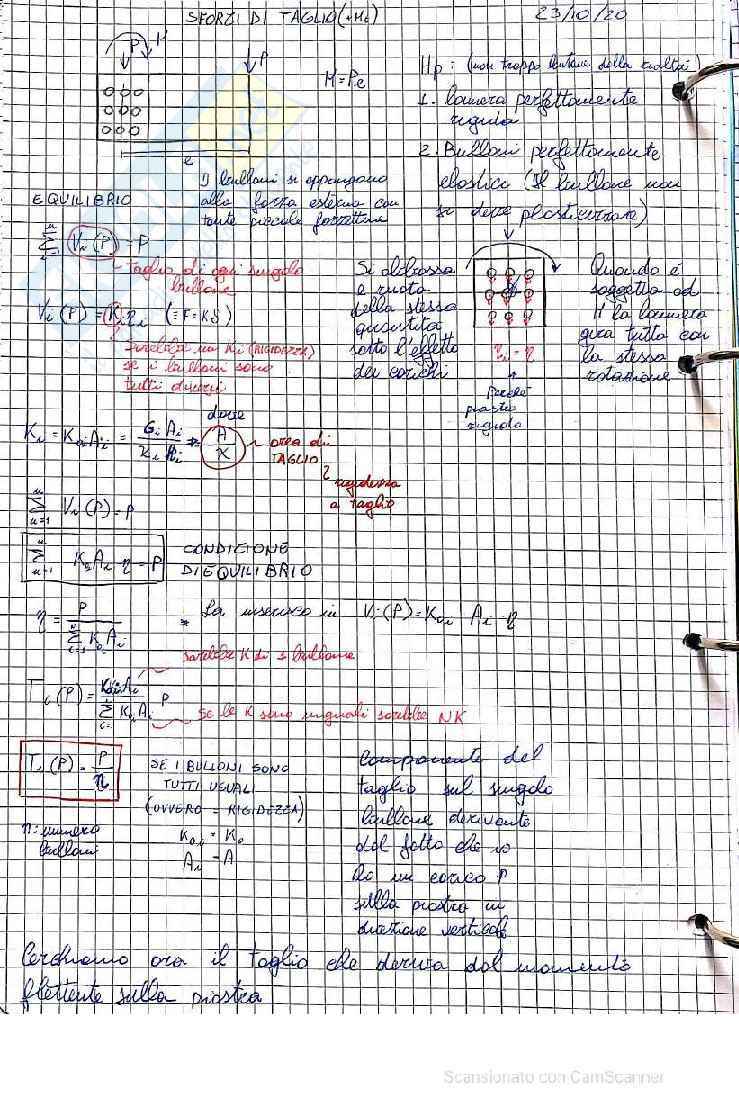 SFORZI DI TAGLIO (+Mt)
23/10/20
P M
P
M=Pe
e
Hp: (non troppo lontane dalla realtà)
1. lamiera perfettamente
rigida
2. Bulloni perfettamente
elastici (Il bullone non
si deve plasticizzare)
I bulloni si oppongono
alla forza esterna con
tante piccole forzettine
EQUILIBRIO
∑ Vi(P) = P
taglio di ogni singolo
bullone
Vi(P) = Ki ηi (= F=Kδ)
sarebbe un Ki (RIGIDEZZA)
se i bulloni sono
tutti diversi
Si abbassa
e ruota
della stessa
quantità
sotto l'effetto
dei carichi
ηi = η
Perché
piastra
rigida
Quando è
soggetta ad
M la lamiera
gira tutta con
la stessa
rotazione
Ki = K0i Ai = Gi Ai / χi hi
dove
A/χ
area di
TAGLIO
rigidezza
a taglio
∑ Vi(P) = P
∑ K0i Ai η = P
CONDIZIONE
DI EQUILIBRIO
η = P / ∑ K0i Ai
* La inserisco in Vi(P) = K0i Ai η
sarebbe K di 1 bullone
Ti(P) = K0i Ai / ∑ K0i Ai P
se le K sono uguali sarebbe NK
Ti(P) = P/n
SE I BULLONI SONO
TUTTI UGUALI
(OVVERO = RIGIDEZZA)
K0,i = K0
Ai = A
n: numero
bulloni
Componente del
taglio sul singolo
bullone derivante
dal fatto che io
ho un carico P
sulla piastra in
direzione verticale
Cerchiamo ora il taglio che deriva dal momento
flettente sulla piastra
Scansionato con CamScanner